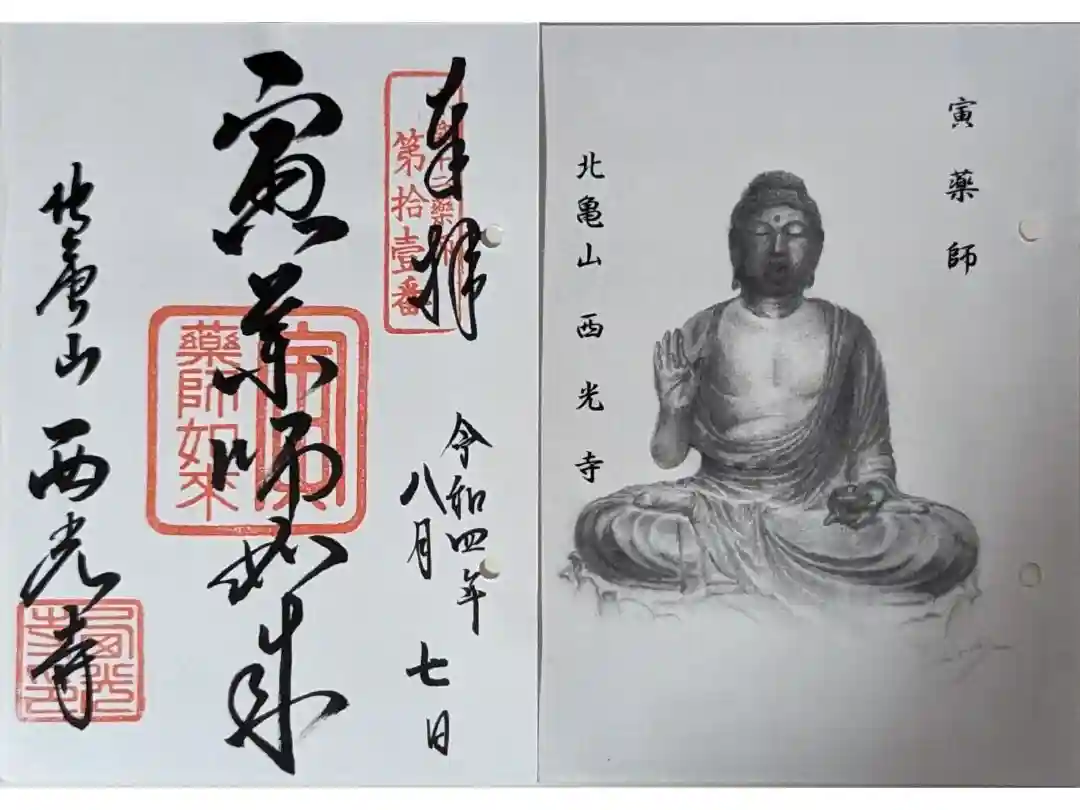 奉拝
第拾壹番
令和四年
八月七日
寅薬師如来
藥師如來
北亀山 西光寺
寅薬師
北亀山西光寺